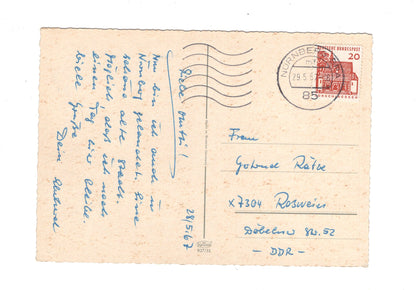 28/5.67
Liebe Mutti!
Nun bin ich auch in
Nürnberg gelandet. Eine
schöne alte Stadt.
Möglich, daß ich noch
einen Tag hier bleibe.
Viele Grüße
Dein
DEUTSCHE BUNDESPOST
20
NÜRNBERG
29.5.67
85
Frau
Gertrud Rätze
X 7304 Rosswein
Döbelner Str. 52
- DDR -